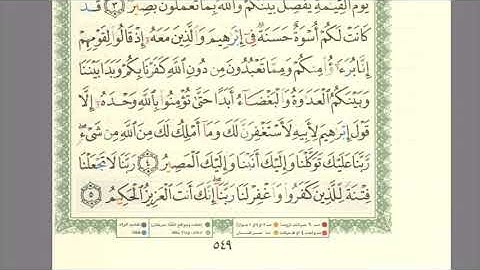 يَوْمَ ٱلْقِيَٰمَةِ يَفْصِلُ بَيْنَكُمْ وَٱللَّهُ بِمَا تَعْمَلُونَ بَصِيرٌ ٣ قَدْ
كَانَتْ لَكُمْ أُسْوَةٌ حَسَنَةٌ فِىٓ إِبْرَٰهِيمَ وَٱلَّذِينَ مَعَهُۥٓ إِذْ قَالُوا۟ لِقَوْمِهِمْ
إِنَّا بُرَءَٰٓؤُا۟ مِنكُمْ وَمِمَّا تَعْبُدُونَ مِن دُونِ ٱللَّهِ كَفَرْنَا بِكُمْ وَبَدَا بَيْنَنَا
وَبَيْنَكُمُ ٱلْعَدَٰوَةُ وَٱلْبَغْضَآءُ أَبَدًا حَتَّىٰ تُؤْمِنُوا۟ بِٱللَّهِ وَحْدَهُۥٓ إِلَّا
قَوْلَ إِبْرَٰهِيمَ لِأَبِيهِ لَأَسْتَغْفِرَنَّ لَكَ وَمَآ أَمْلِكُ لَكَ مِنَ ٱللَّهِ مِن شَىْءٍ ۖ
رَّبَّنَا عَلَيْكَ تَوَكَّلْنَا وَإِلَيْكَ أَنَبْنَا وَإِلَيْكَ ٱلْمَصِيرُ ٤ رَبَّنَا لَا تَجْعَلْنَا
فِتْنَةً لِّلَّذِينَ كَفَرُوا۟ وَٱغْفِرْ لَنَا رَبَّنَآ ۖ إِنَّكَ أَنتَ ٱلْعَزِيزُ ٱلْحَكِيمُ ٥
٥٤٩